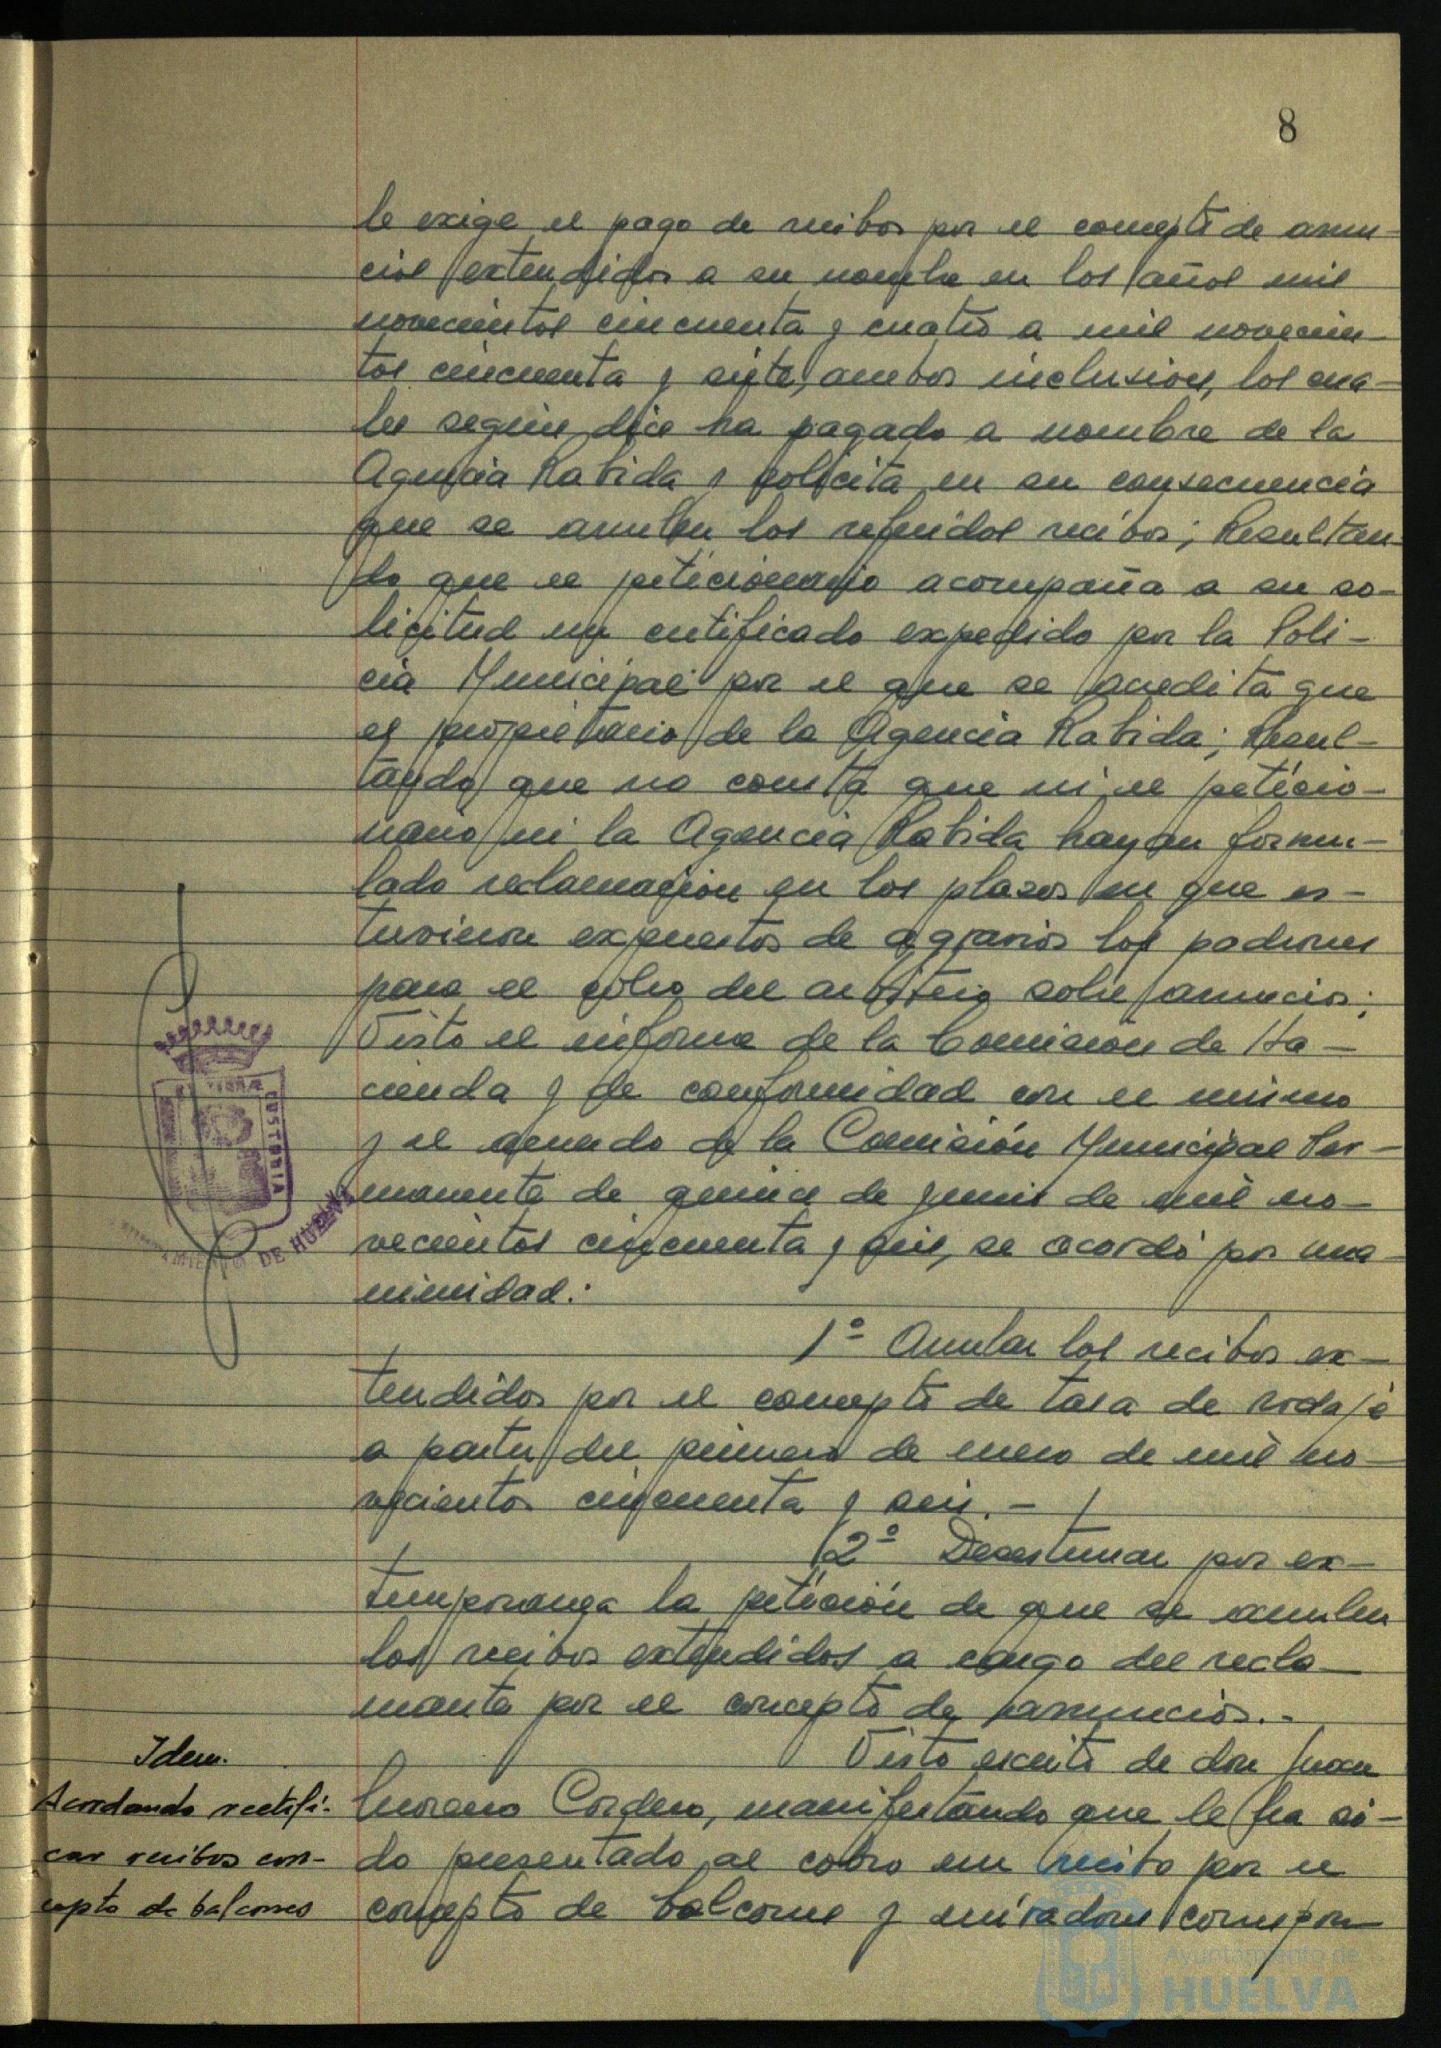 8
le exige el pago de recibos por el concepto de anun-
cios extendidos a su nombre en los años mil
novecientos cincuenta y cuatro a mil novecien-
tos cincuenta y siete, ambos inclusion, los cua-
les según dice ha pagado a nombre de la
Agencia Rabida y solicita en su consecuencia
que se anulen los referidos recibos; Resultan-
do que el peticionario acompaña a su so-
licitud un certificado expedido por la Poli-
cia Municipal por el que se acredita que
es propietario de la Agencia Rabida; Resul-
tando que no consta que ni el peticio-
nario ni la Agencia Rabida hayan formu-
lado reclamación en los plazos en que es-
tuvieron expuestos de agravios los padrones
para el cobro del arbitrio sobre anuncios;
Visto el informe de la Comisión de Ha-
cienda y de conformidad con el mismo
y el acuerdo de la Comisión Municipal Per-
manente de quince de junio de mil no-
vecientos cincuenta y seis, se acordó por una-
nimidad:
1º Anular los recibos ex-
tendidos por el concepto de tasa de rodaje
a partir del primero de enero de mil no-
vecientos cincuenta y seis.-
2º Desestimar por ex-
temporanea la petición de que se anulen
los recibos extendidos a cargo del recla-
mante por el concepto de anuncios.-
Visto escrito de don Juan
Moreno Cordero, manifestando que le ha si-
do presentado al cobro un recibo por el
concepto de balcones y miradores correspon-
Idem.
Acordando rectifi-
car recibos con-
cepto de balcones
CUSTODIA
DE HUELVA
Ayuntamiento de
HUELVA